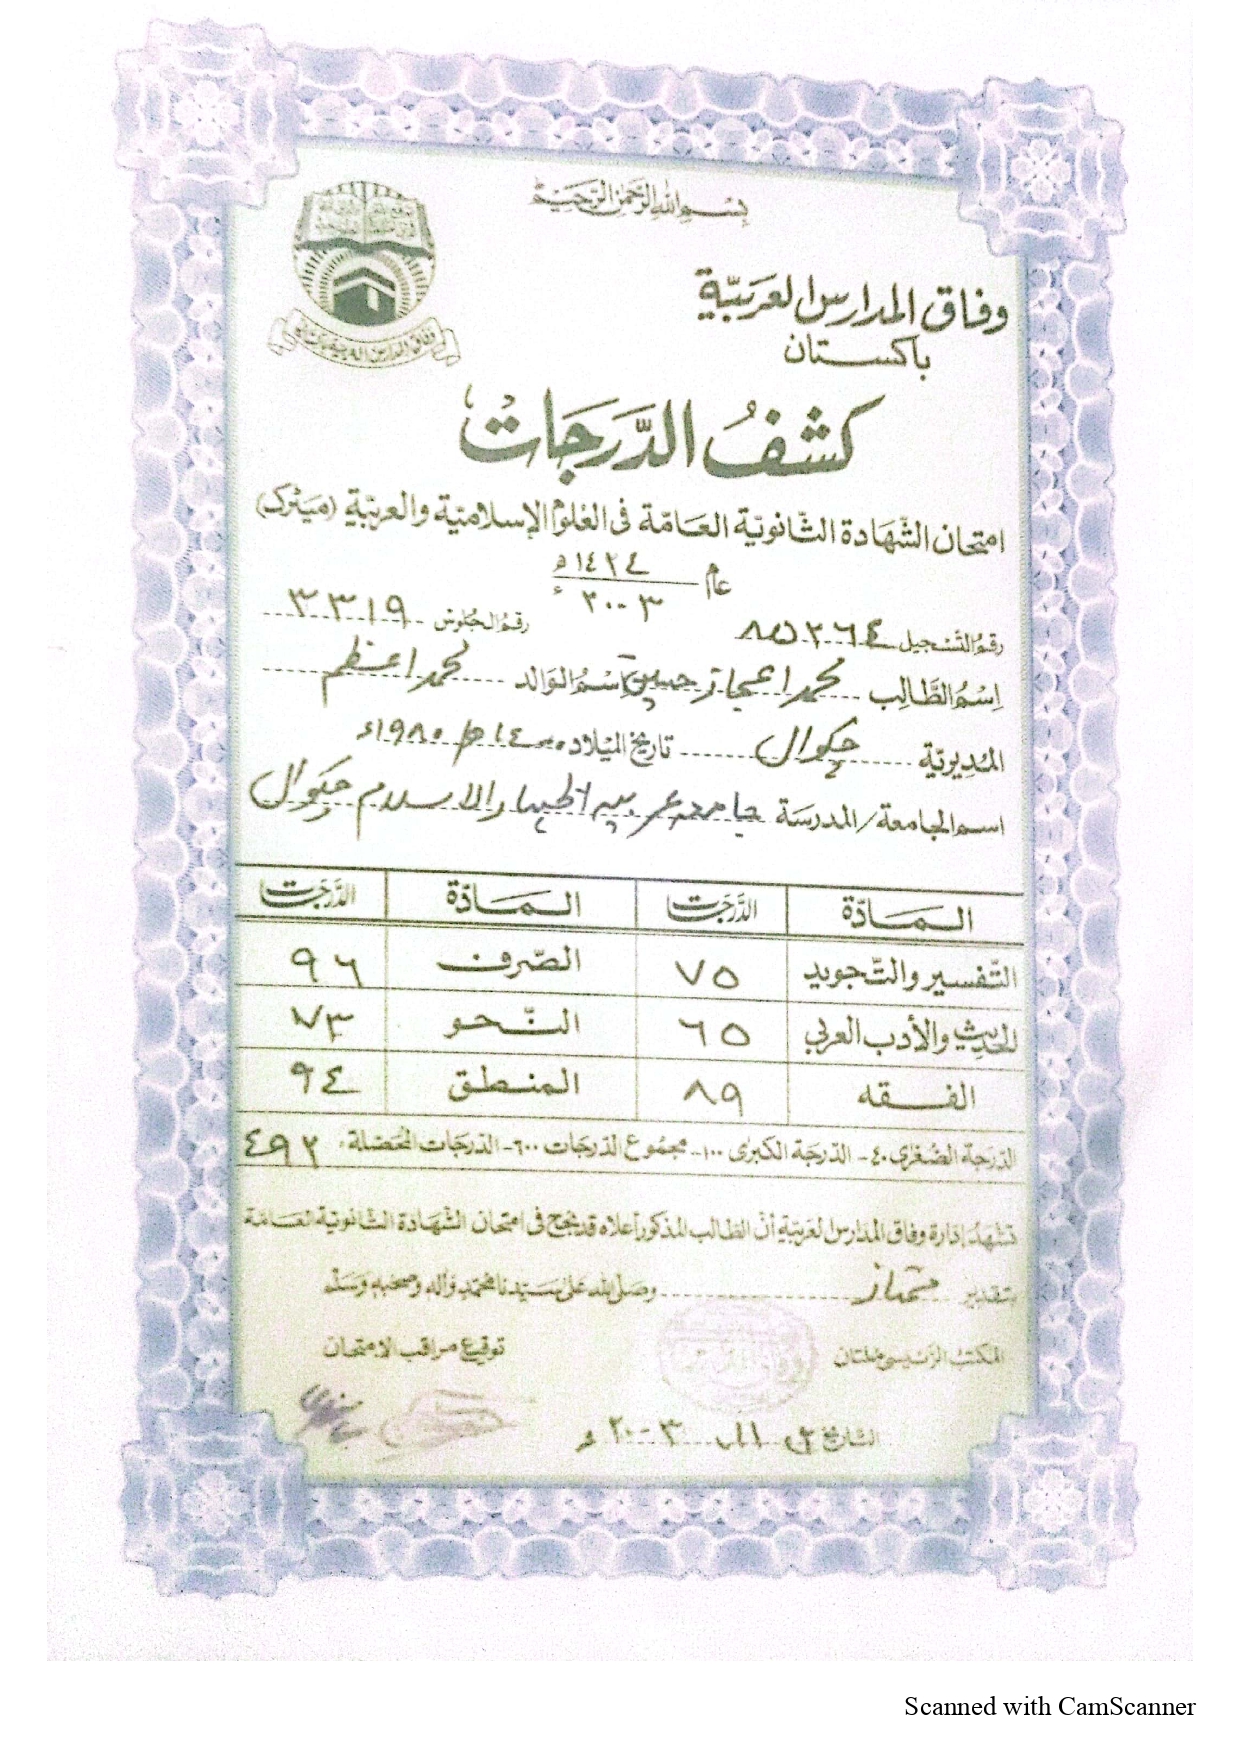 بسم الله الرحمن الرحيم
وفاق المدارس العربيّة
باكستان
كشفُ الدَّرَجَات
امتحان الشّهَادة الثّانويّة العَامّة فى العُلوم الإسلاميّة والعربيّة (ميٹرك)
عام ١٤٢٤ھ
٢٠٠٣ء
رقمُ التّسجيل ٨٥٢٦٤ رقمُ الجُلوس ٣٣١٩
اِسْمُ الطَّالِب محمد اعجاز حسين اسْمُ الوَالد محمد اعظم
المُديريّة چكوال تاريخ الميلاد ١٤٠٠ھ ١٩٨٠ء
اسم الجامعة/المدرسَة جامعه عربيه اظهار الاسلام چكوال
المَادّة الدَّرَجَات المَادّة الدَّرَجَات
التّفسير والتّجويد ٧٥ الصّرف ٩٦
الحديث والأدب العربي ٦٥ النّحو ٧٣
الفقه ٨٩ المنطق ٩٤
الدّرجة الصُّغرى ٤٠- الدّرجَة الكبرى ١٠٠- مجموع الدّرجات ٦٠٠- الدّرجات المُحَصَّلة: ٤٩٢
تشهَدُ إدارة وفاق المدارس العربيّة أنّ الطالب المذكور أعلاه قد نجح فى امتحان الشّهَادة الثّانويّة العَامّة
بتقدير ممتاز وصلى الله على سيّدنا محمّد وآله وصحبه وسلّم
المكتب الرّئيسى ملتان توقيع مراقب الامتحان
التاريخ ١١ ٢٠٠٣ م
Scanned with CamScanner